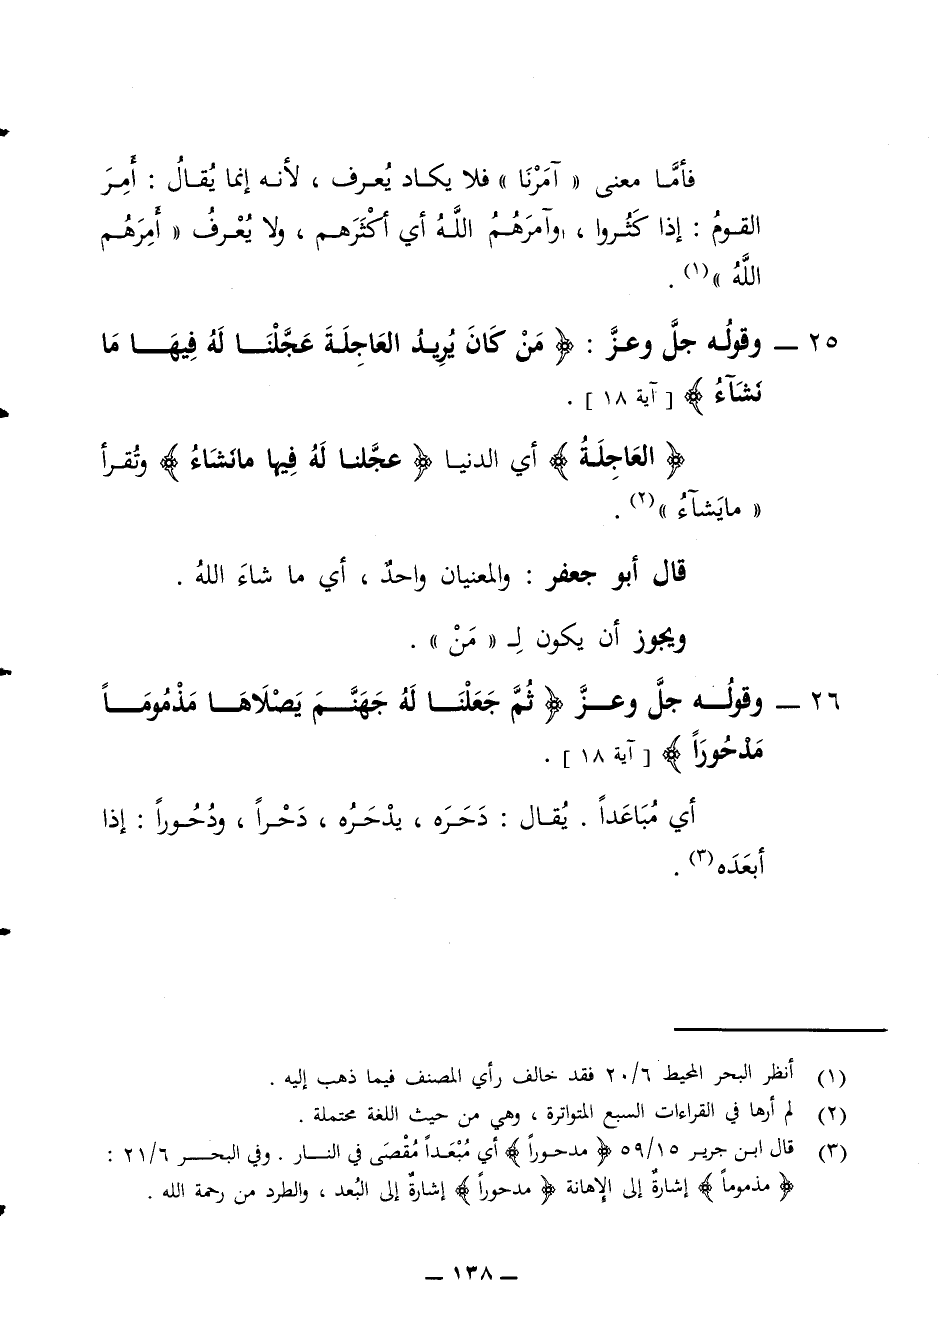 فأمَّا معنى « آمَرْنَا » فلا يكاد يُعرف ، لأنه إنما يُقالُ : أَمِرَ
القومُ : إذا كَثُروا ، وآمَرَهُمُ اللَّهُ أي أكْثَرَهم ، ولا يُعْرفُ « أَمِرَهُم
اللَّهُ »(١) .
٢٥ ــ وقولُه جلَّ وعزَّ : ﴿ مَنْ كَانَ يُرِيدُ العَاجِلَةَ عَجَّلْنَا لَهُ فِيهَا مَا
نَشَآءُ ﴾ [ آية ١٨ ] .
﴿ العَاجِلَةُ ﴾ أي الدنيا ﴿ عجَّلنا لَهُ فِيها مانَشَاءُ ﴾ وتُقرأ
« مايَشآءُ »(٢) .
قال أبو جعفر : والمعنيان واحدٌ ، أي ما شاءَ اللهُ .
ويجوز أن يكون لِـ « مَنْ » .
٢٦ ــ وقولُه جلَّ وعزَّ ﴿ ثُمَّ جَعَلْنَا لَهُ جَهَنَّمَ يَصْلَاهَا مَذْمُومَاً
مَدْحُورَاً ﴾ [ آية ١٨ ] .
أي مُبَاعَداً . يُقال : دَحَرَه ، يدْحَرُه ، دَحْراً ، ودُحُوراً : إذا
أبعَدَه(٣) .
(١) أنظر البحر المحيط ٢٠/٦ فقد خالف رأي المصنف فيما ذهب إليه .
(٢) لم أرها في القراءات السبع المتواترة ، وهي من حيث اللغة محتملة .
(٣) قال ابن جرير ٥٩/١٥ ﴿ مدحوراً ﴾ أي مُبْعَداً مُقْصَى في النار . وفي البحر ٢١/٦ :
﴿ مذموماً ﴾ إشارةٌ إلى الإهانة ﴿ مدحوراً ﴾ إشارةٌ إلى البُعد ، والطرد من رحمة الله .
ــ ١٣٨ ــ